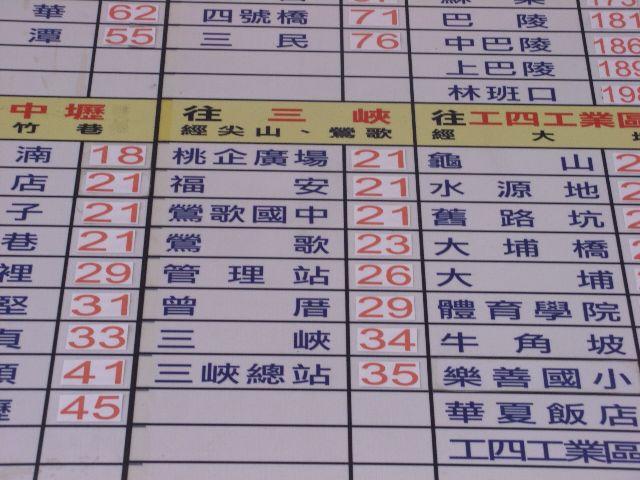 華 62 四號橋 71 巴陵 181
潭 55 三民 76 中巴陵 186
上巴陵 189
林班口 198
中壢 往三峽 往工四工業區
竹巷 經尖山、鶯歌 經大
湳 18 桃企廣場 21 龜山 2
店 21 福安 21 水源地
子 21 鶯歌國中 21 舊路坑
巷 21 鶯歌 23 大埔橋
裡 29 管理站 26 大埔
堅 31 曾厝 29 體育學院
貞 33 三峽 34 牛角坡
頭 41 三峽總站 35 樂善國小
壢 45 華夏飯店
工四工業區